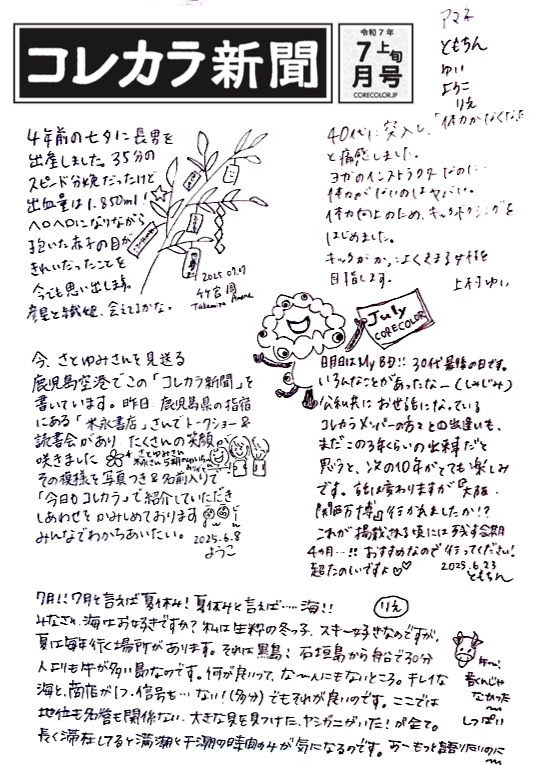 コレカラ新聞
令和7年
7上旬
月号
CORECOLOR.JP
アマネ
ともちん
ゆい
ようこ
りえ
4年前の七夕に長男を
出産しました。35分の
スピード分娩だったけど
出血量は1,850ml!
ヘロヘロになりながら
抱いた赤子の目が
きれいだったことを
今でも思い出します。
彦星と織姫、会えてるかな。
2025.07.07
竹宮 周
Takemiya Amane
40代に突入し、「体力がなくなった」
と痛感しました。
ヨガのインストラクタなのに…
体力がないのはヤバい。
体力向上のため、キックボクシングを
はじめました。
キックがかっこよくきまる女性を
目指します。
上村ゆい
July
CORECOLOR
今、さとゆみさんを見送る
鹿児島空港でこの「コレカラ新聞」を
書いています。昨日 鹿児島県の指宿
にある「米永書店」さんでトークショー&
読書会があり たくさんの笑顔が
咲きました
さとゆみさん
その模様を写真つき&名前入りで
「今日もコレカラ」で紹介していただき
しあわせをかみしめております
みんなでわかちあいたい。
2025.6.8
ようこ
明日はMy BD!! 30代最後の日です。
いろんなことがあったなー(しみじみ)
公私共にお世話になっている
コレカラメンバーの方々との出逢いも、
まだこの3年くらいの出来事だと
思うと、次の10年がとても楽しみ
です。話は変わりますが『大阪・
関西万博』行かれましたか!?
これが掲載される頃には残す会期
4ヵ月…!! おすすめなので行ってください!
超たのしいですよ♡♡
2025.6.23
ともちん
7月!!7月と言えば夏休み!夏休みと言えば……海!!
りえ
みなさん、海はお好きですか?私は生粋の冬っ子、スキー好きなのですが、
夏は毎年行く場所があります。それは黒島!石垣島から船で30分
人よりも牛が多い島なのです。何が良いって、な〜んにもないところ。キレイな
海と、商店が1つ、信号も…ない!(多分)でもそれが良いのです。ここでは
地位も名誉も関係ない、大きな貝を見つけた、ヤシガニがいた!が全て。
長く滞在してると満潮と干潮の時間のみが気になるのです。あーもっと語りたいのに〜
モー!
書くんじゃ
なかった〜
しっぱい